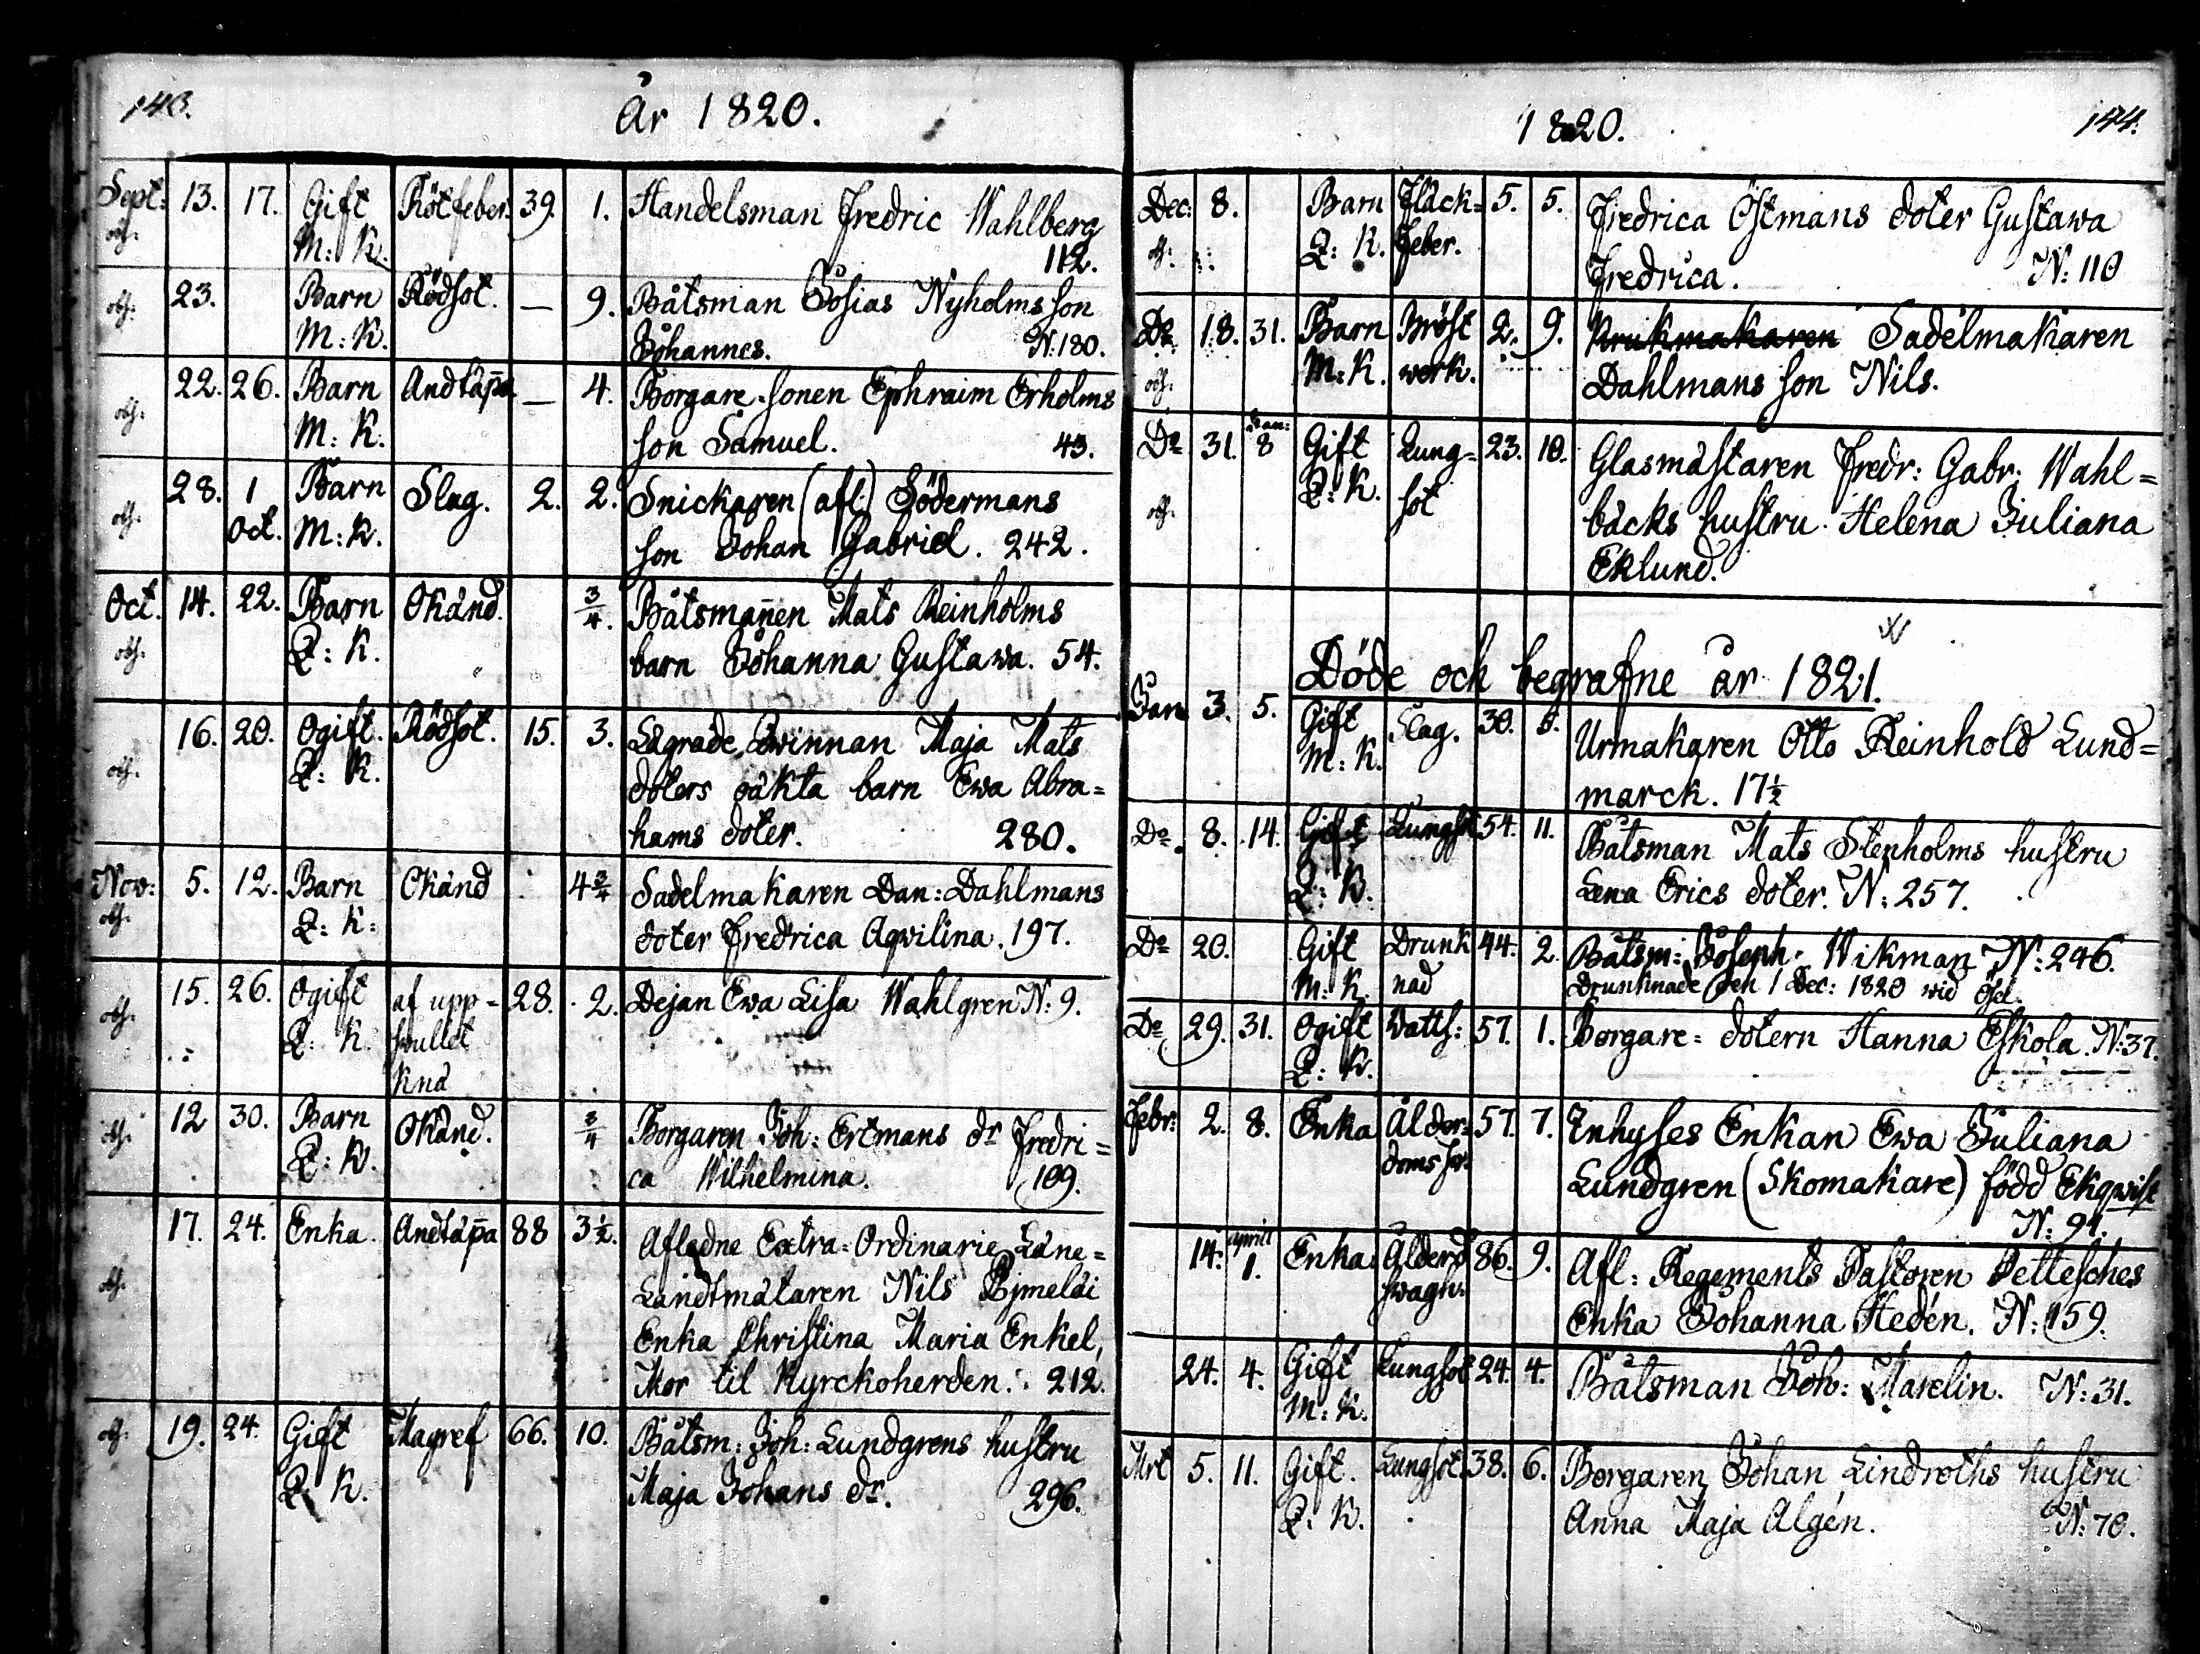 143.
År 1820.
Sept: 13. 17. Gift Rötfeber. 39. 1. Handelsman Fredric Wahlberg
M: K. 112.
23. Barn Rödsot. — 9. Båtsman Josias Nyholms son
M: K. Johannes. N. 180.
22. 26. Barn Andtäpa. — 4. Borgare-sonen Ephraim Erholms
M: K. son Samuel. 43.
28. 1 Barn Slag. 2. 2. Snickaren (afl:) Södermans
Oct. M: K. son Johan Gabriel. 242.
Oct. 14. 22. Barn Okänd. 3/4. Båtsmannen Mats Reinholms
Q: K. barn Johanna Gustawa. 54.
16. 20. Ogift. Rödsot. 15. 3. Lägrade Qwinnan Maja Mats
Q: K. doters oäkta barn Ewa Abra=
hams doter. 280.
Now: 5. 12. Barn Okänd 4 3/4 Sadelmakaren Dan: Dahlmans
Q: K: doter Fredrica Aqwilina. 197.
15. 26. Ogift af upp= 28. 2. Dejan Ewa Lisa Wahlgren N: 9.
Q: K. swullet
knä
12 30. Barn Okänd. 3/4 Borgaren Joh: Ertmans dr Fredri=
Q: K. ca Wilhelmina. 109.
17. 24. Enka. Andtäpa 88 3 1/2. Aflednе Extra-Ordinarie Läne=
Landtmätaren Nils
Enka Christina Maria Enkel,
Mor til Kyrckoherden. 212.
19. 24. Gift Magref 66. 10. Båtsm: Joh: Lundgrens hustru
Q: K. Maja Johans dr. 296.
1820.
144.
Dec: 8. Barn Fläck= 5. 5. Fredrica Östmans doter Gustawa
Q: K. feber. Fredrica. N: 110
Do 18. 31. Barn Bröst 2. 9. Krukmakaren Sadelmakaren
M: K. werk. Dahlmans son Nils.
Do 31. Jan: 8 Gift Lung= 23. 10. Glasmästaren Fredr: Gabr: Wahl=
Q: K. sot bäcks hustru Helena Juliana
Eklund.
Döde och begrafne år 1821.
Jan 3. 5. Gift Slag. 30. 5. Urmakaren Otto Reinhold Lund=
M: K. marck. 17 1/2
Do. 8. 14. Gift Lungsot 54. 11. Båtsman Mats Stenholms hustru
Q: K. Lena Erics doter. N: 257.
Do 20. Gift Drunk 44. 2. Båtsm: Joseph Wikman N: 246.
M: K. nad Drunknade den 1 Dec: 1820 wid Ösel.
Do 29. 31. Ogift Watts: 57. 1. Borgare= dotern Hanna Eskola. N: 37.
Q: K.
Febr: 2. 8. Enka Ålder= 57. 7. Inhyses Enkan Ewa Juliana
doms sw. Lundgren (Skomakare) född Ekqwist
N: 94.
14. April 1. Enka Ålderd 86. 9. Afl: Regements Pastoren Pettesches
swagh. Enka Johanna Hedén. N: 159.
24. 4. Gift Lungsot 24. 4. Båtsman Joh: Marelin. N: 31.
M: K.
Mrt 5. 11. Gift. Lungsot 38. 6. Borgaren Johan Lindroths hustru
Q: K. Anna Maja Algén. N: 70.